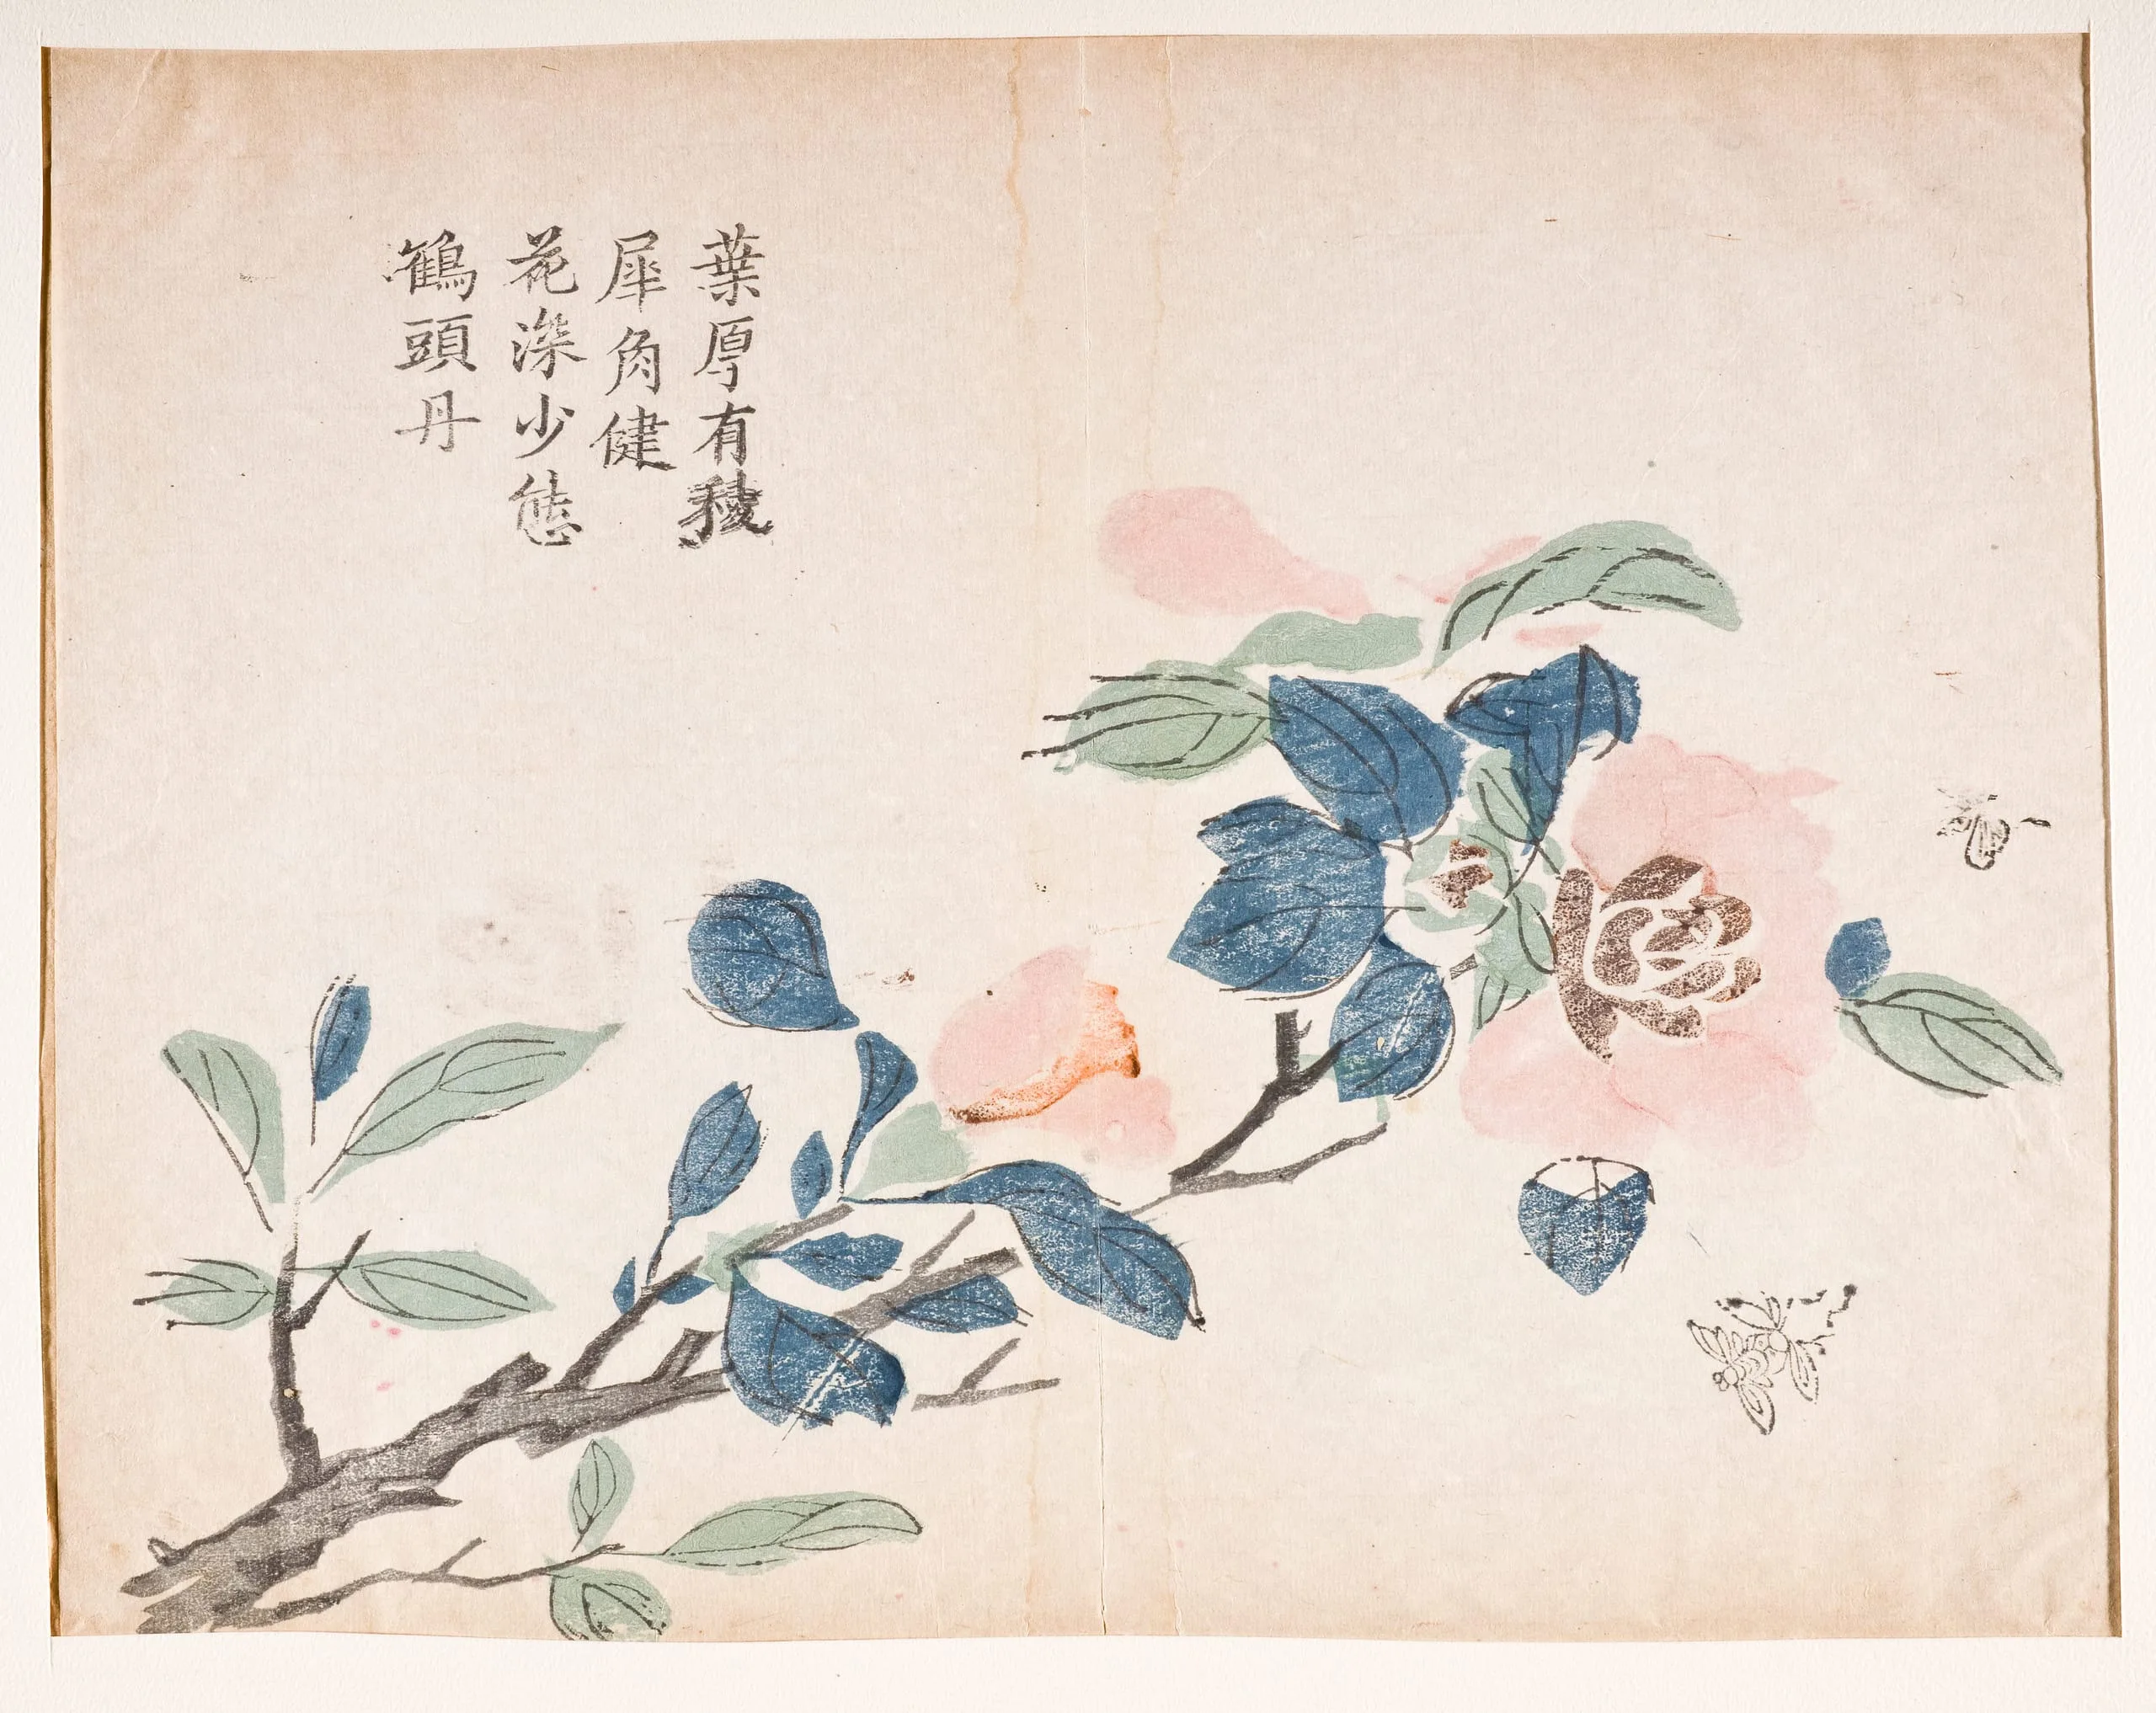 葉厚有稜
犀角健
花深少態
鶴頭丹